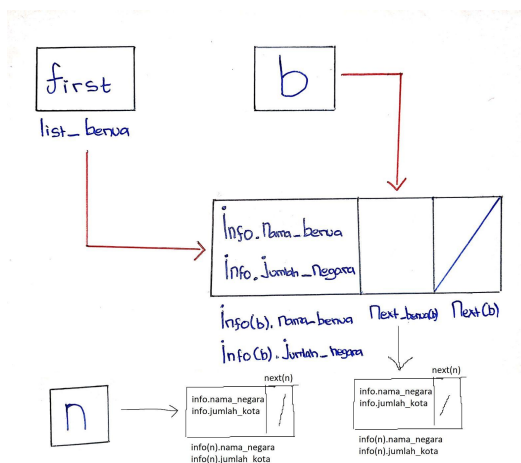 first
b
list_benua
Info.nama_benua
Info.jumlah_negara
Info(b).nama_benua
Next_benua(b)
Next(b)
Info(b).jumlah_negara
n
next(n)
info.nama_negara
info.jumlah_kota
info(n).nama_negara
info(n).jumlah_kota
next(n)
info.nama_negara
info.jumlah_kota
info(n).nama_negara
info(n).jumlah_kota